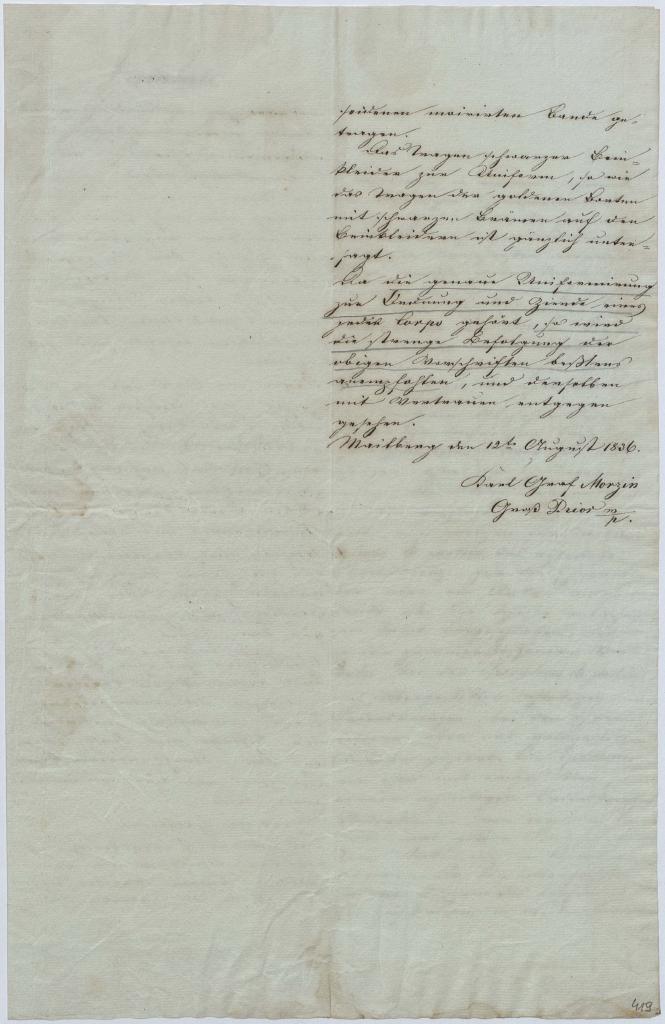 seidenen moirirten Bande ge-
tragen.
Das Tragen schwarzer Bein-
kleider zur Uniform, so wie
das Tragen der goldenen Borten
mit schwarzen Brämen auf den
Beinkleidern ist gänzlich unter-
sagt.
Da die genaue Uniformirung
zur Ordnung und Zierde eines
jeden Corps gehört, so wird
die strenge Befolgung der
obigen Vorschriften bestens
anempfohlen, und derselben
mit Vertrauen entgegen
gesehen.
Mailberg den 12te August 1836.
Karl Graf Morzin
Groß Prior m/p.
419